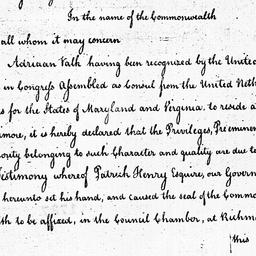 In the name of the Commonwealth
all whom it may concern
Adriaan Valk having been recognized by the United
in Congress Assembled as Consul from the United Neth
s for the States of Maryland and Virginia, to reside a
more, it is hereby declared that the Privileges, Preeminen
ority belonging to such Character and quality are due to
Testimony whereof Patrick Henry Esquire, our Govern
hereunto set his hand, and caused the seal of the Commo
th to be affixed, in the Council Chamber, at Richm
this